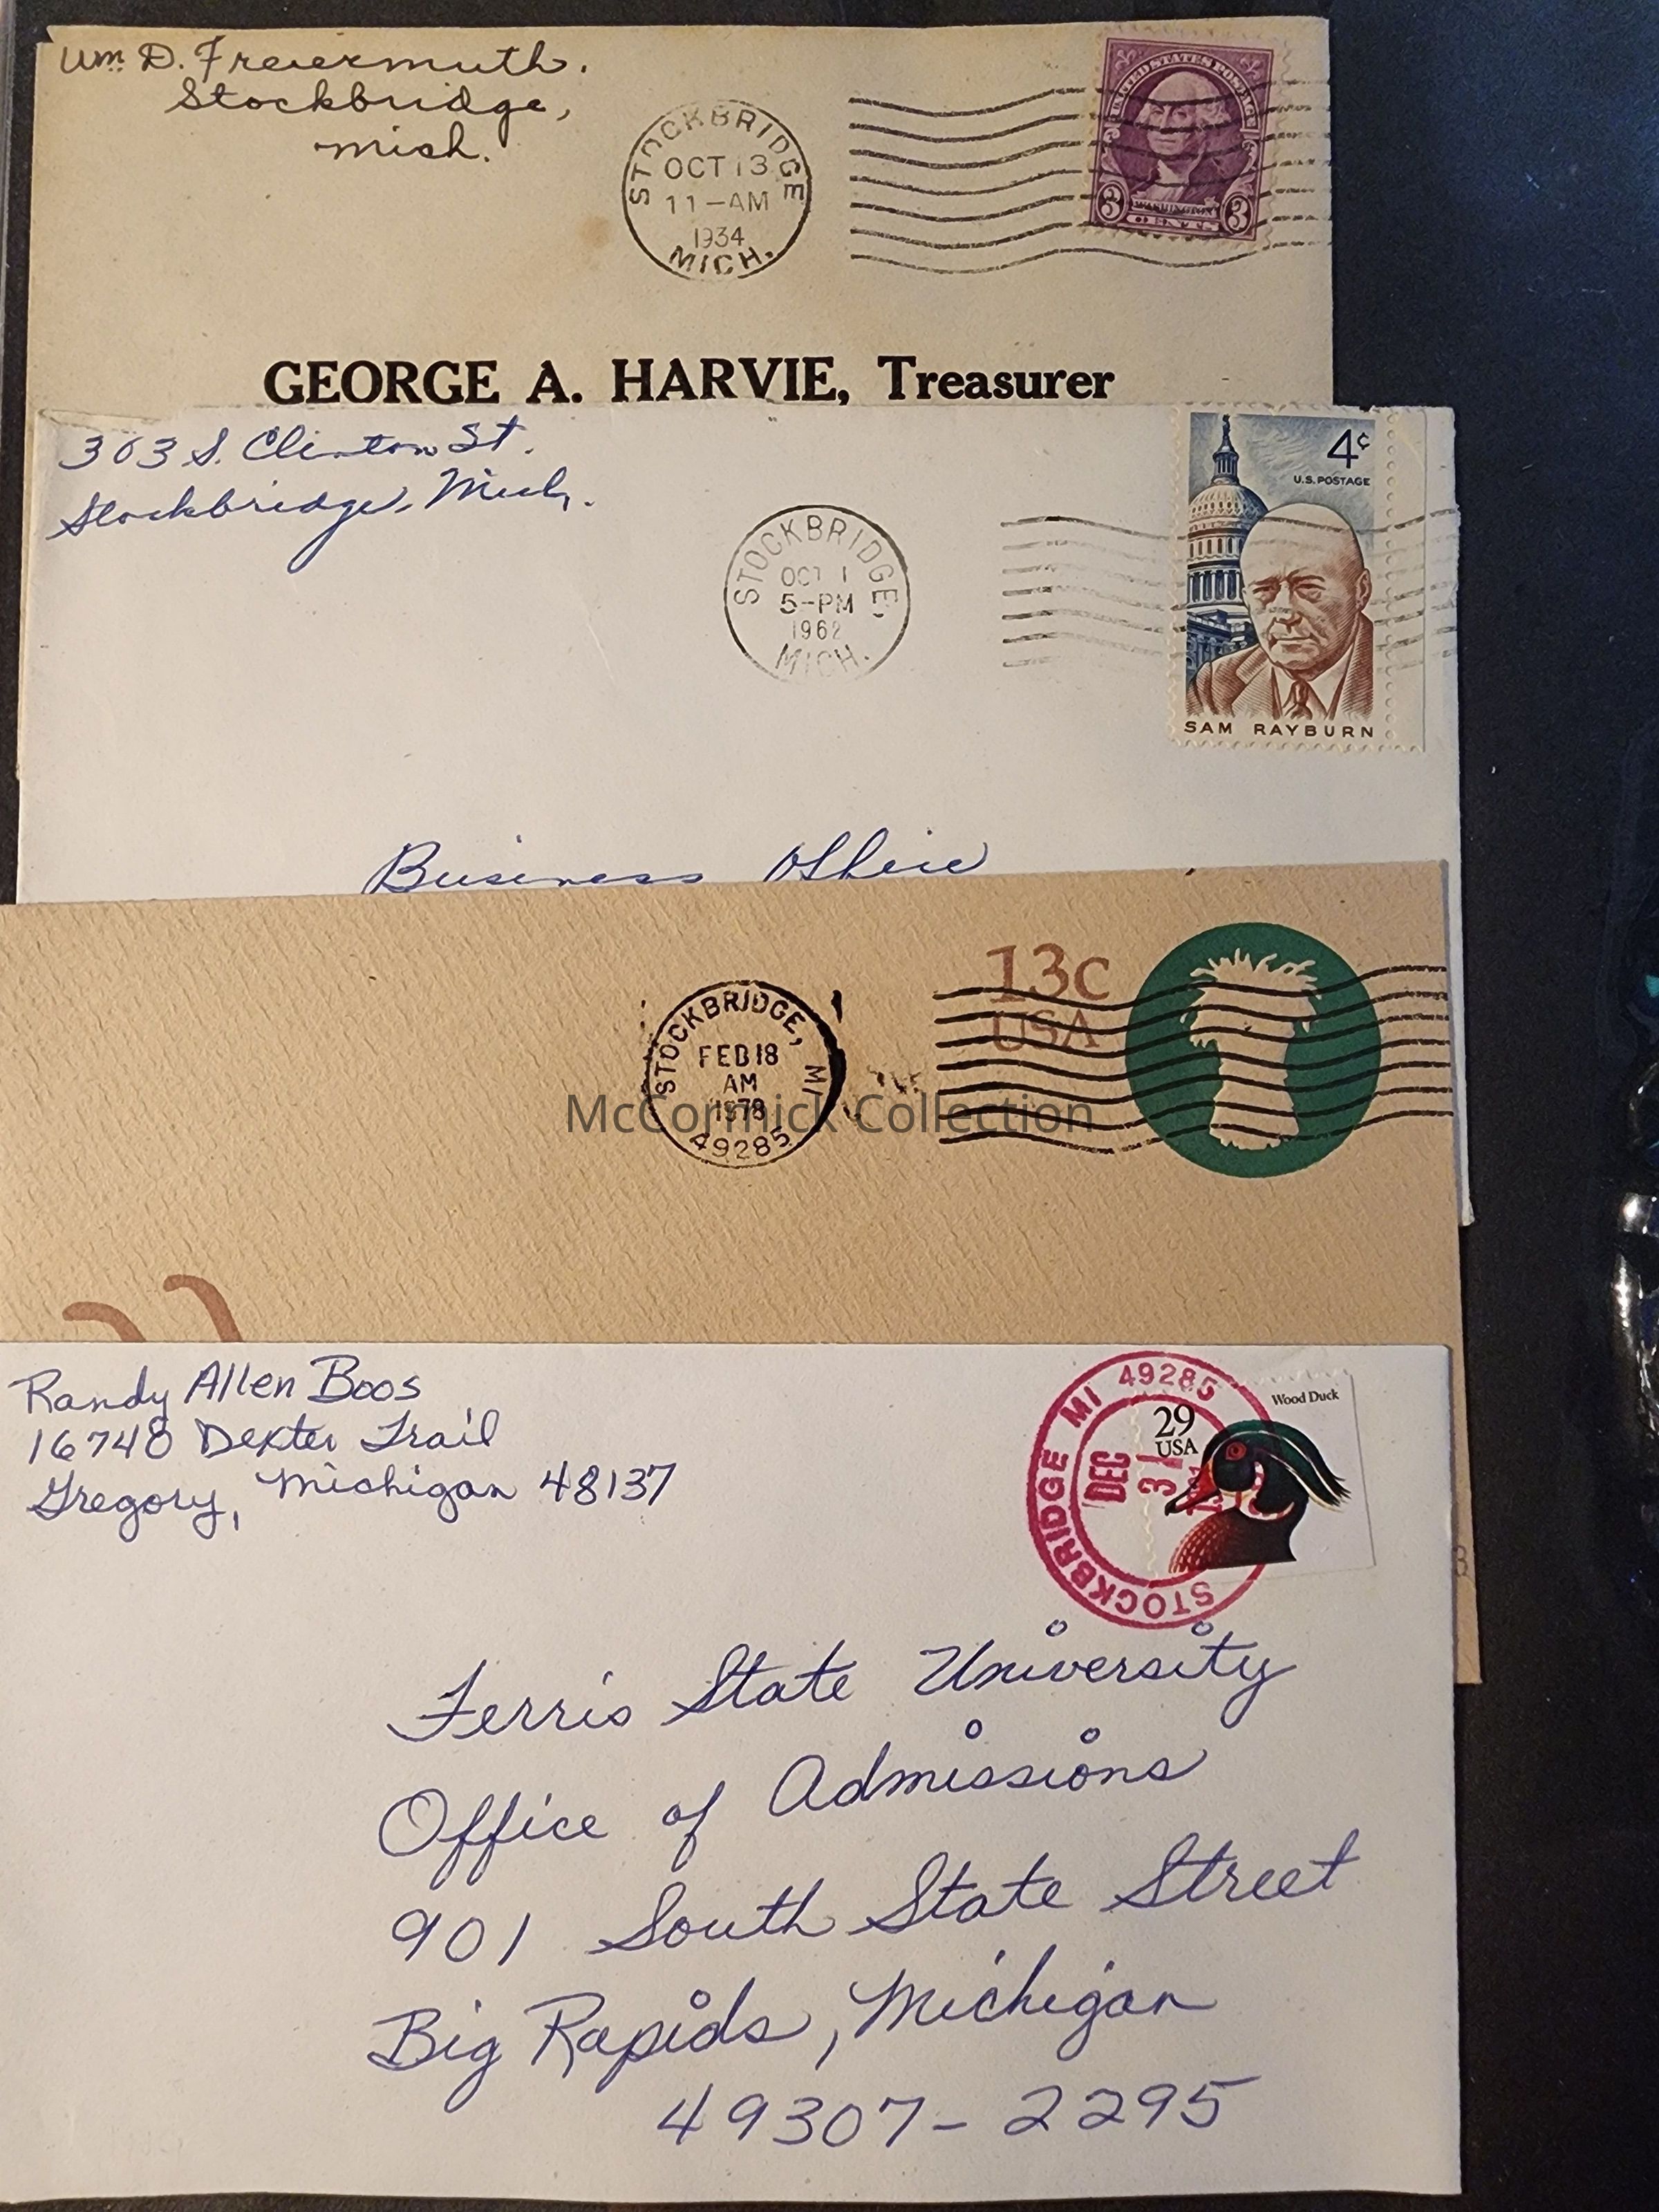 Wm D. Freiermuth.
Stockbridge,
Mich.
STOCKBRIDGE
OCT 13
11-AM
1934
MICH.
UNITED STATES POSTAGE
3 WASHINGTON 3
CENTS
GEORGE A. HARVIE, Treasurer
303 S. Clinton St.
Stockbridge, Mich.
STOCKBRIDGE,
OCT 1
5-PM
1962
MICH.
4¢
U.S. POSTAGE
SAM RAYBURN
Business Office
STOCKBRIDGE, MI
FEB 18
AM
1978
49285
13c
USA
McCormick Collection
Randy Allen Boos
16748 Dexter Trail
Gregory, Michigan 48137
STOCKBRIDGE MI 49285
DEC
31
29
USA
Wood Duck
Ferris State University
Office of Admissions
901 South State Street
Big Rapids, Michigan
49307-2295